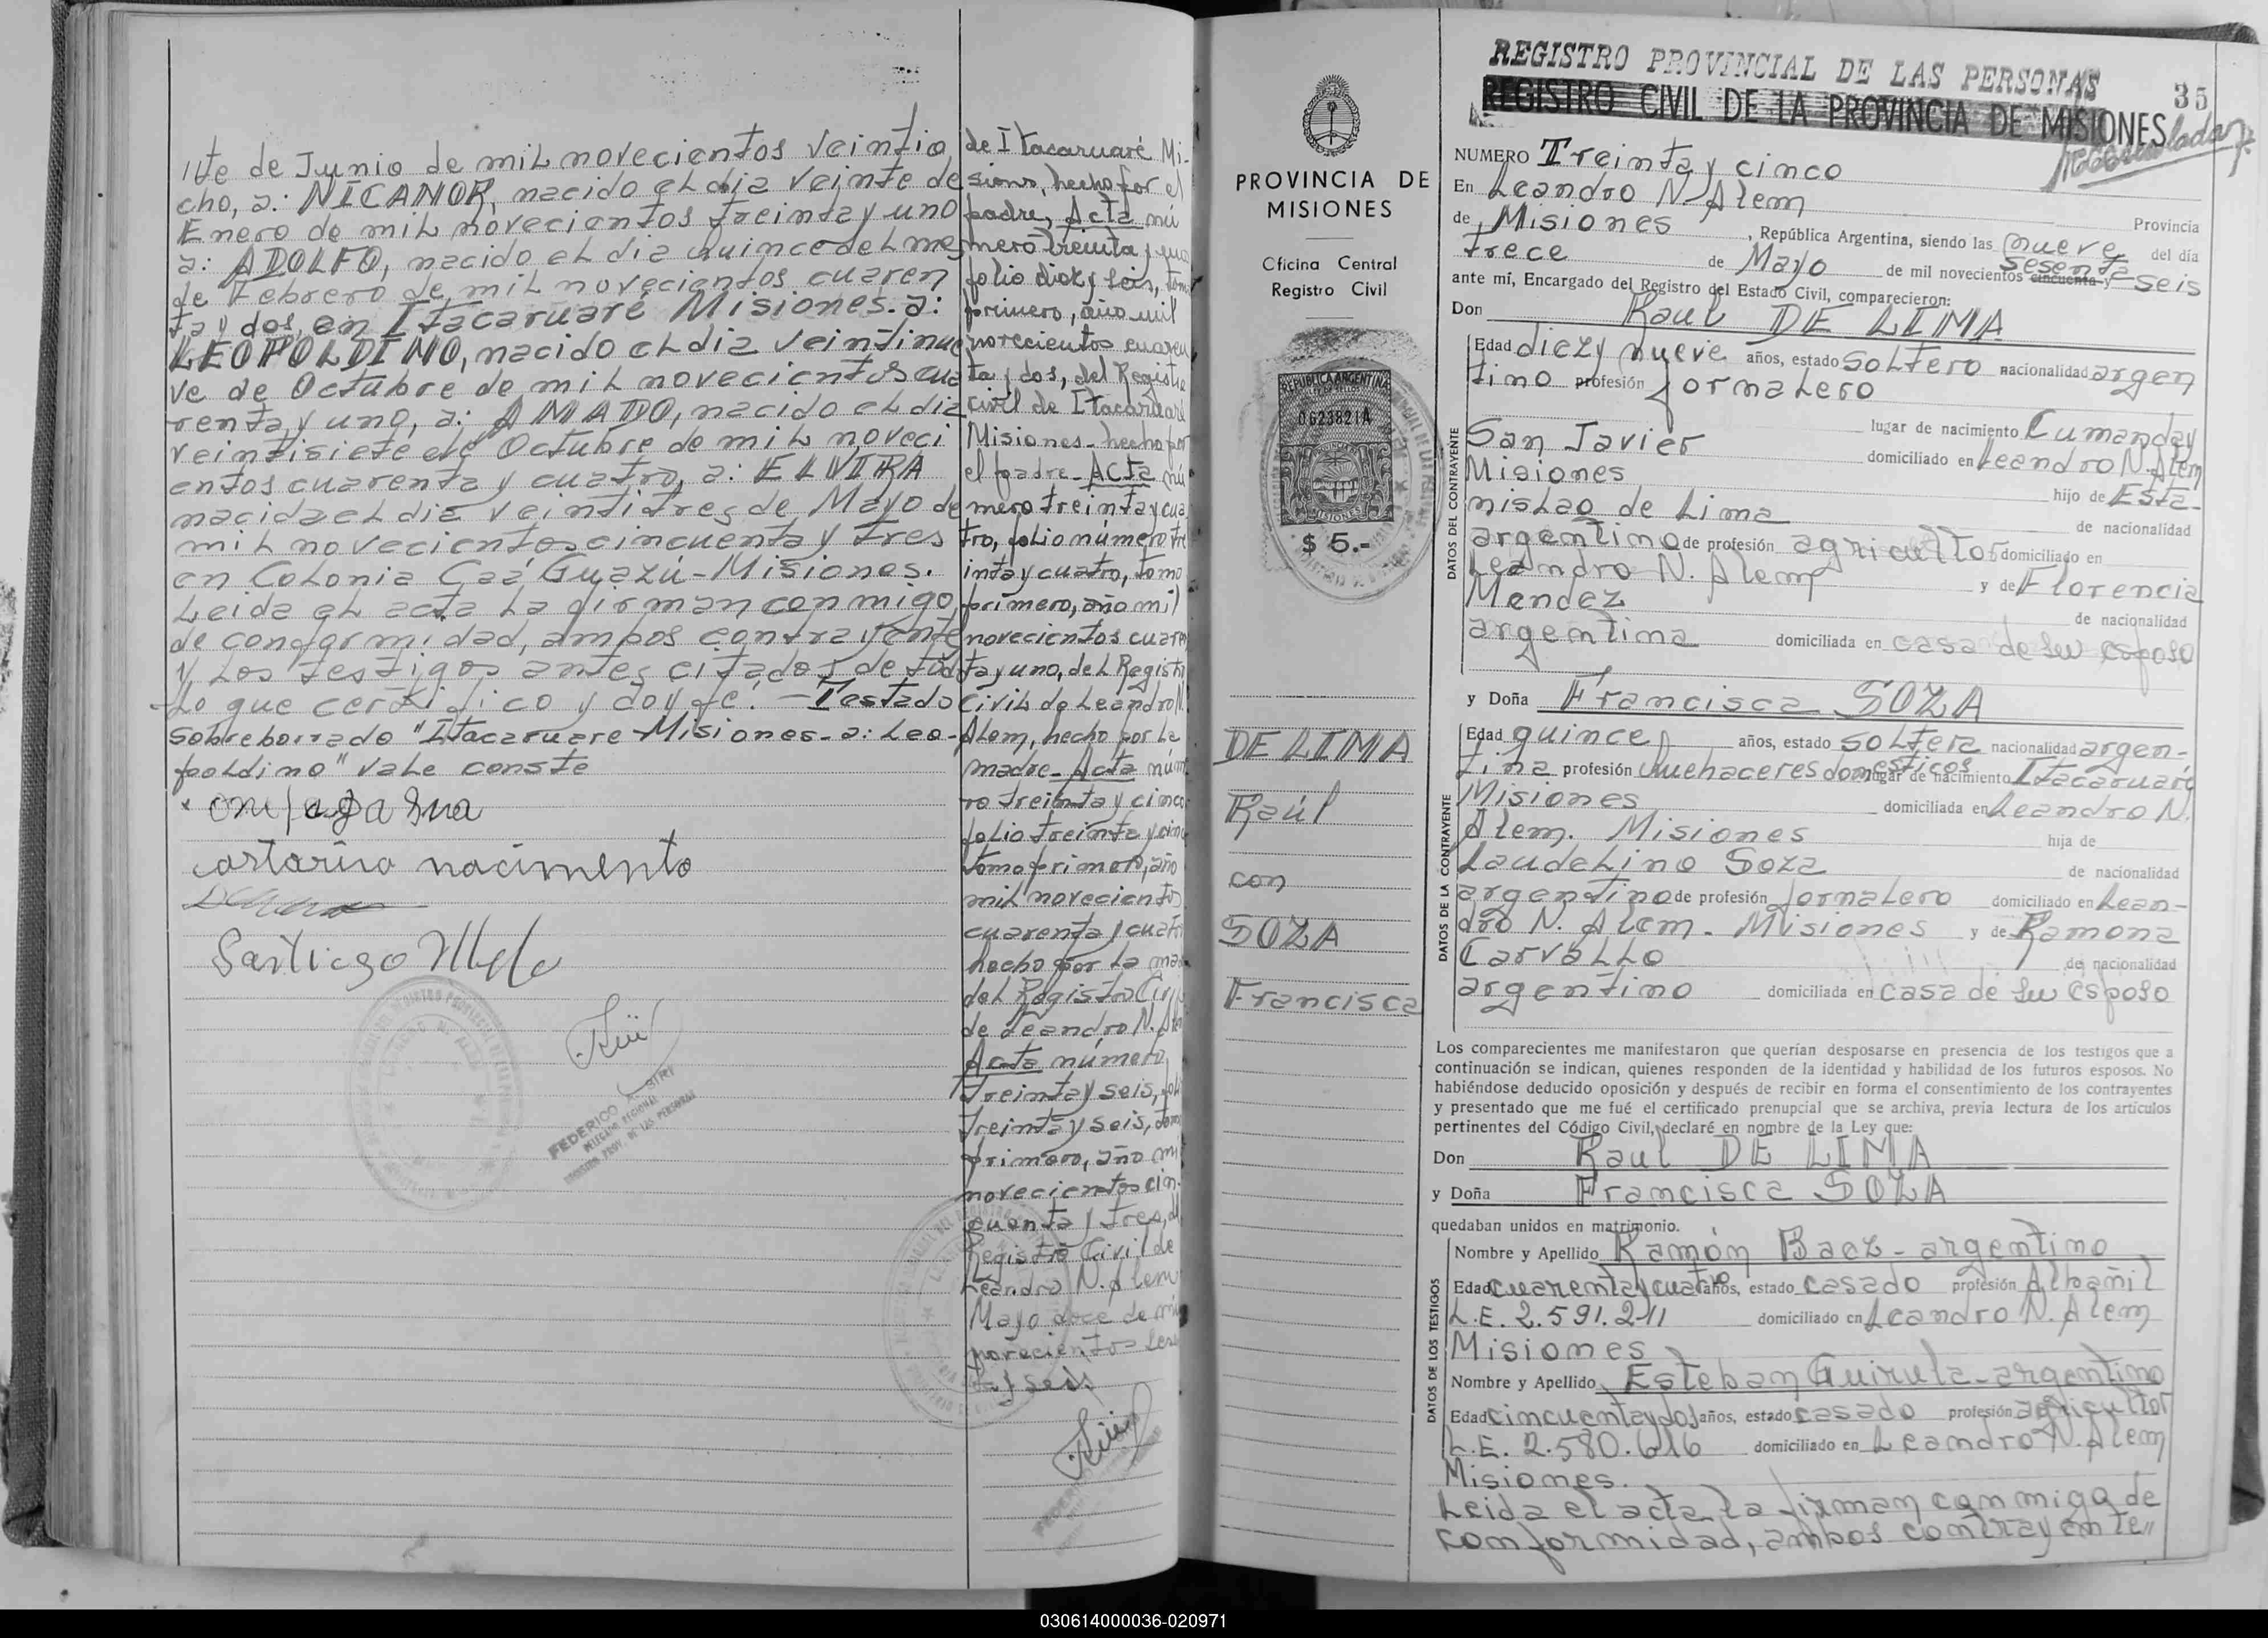 "te de Junio de mil novecientos veintio
cho, a: NICANOR, nacido el dia veinte de
Enero de mil novecientos treinta y uno
a: ADOLFO, nacido el dia quince del mes
de Febrero de mil novecientos cuaren
ta y dos, en Itacaruaré Misiones. a:
LEOPOLDINO, nacido el dia veintinue
ve de Octubre de mil novecientos cua
renta y uno, a: AMADO, nacido el dia
veintisiete de Octubre de mil noveci
entos cuarenta y cuatro, a: ELVIRA
nacida el dia veintitres de Mayo de
mil novecientos cincuenta y tres
en Colonia Caá Guazú - Misiones.
Leida el acta la firman conmigo,
de conformidad, ambos contrayente
y los testigos antes citados de todo
lo que certifico y doy fé. — Testado
Sobreborrado "Itacaruare - Misiones - a: Leo-
poldino" vale conste
nacimento
Santiago
FEDERICO A. SIRY
de Itacaruaré Mi-
siones, hecho por el
padre, Acta nú
mero treinta y
folio diez y seis, tomo
primero, año mil
novecientos cuaren
ta y dos, del Registro
civil de Itacaruaré
Misiones - hecho por
el padre - Acta nú
mero treinta y cua
tro, folio número tre
inta y cuatro, tomo
primero, año mil
novecientos cuaren
ta y uno, del Registro
Civil de Leandro N.
Alem, hecho por la
madre - Acta núm
ro treinta y cinco
folio treinta y cinco
tomo primero, año
mil novecientos
cuarenta y cuatro
hecho por la ma
del Registro Civ
de Leandro N. Alem
Acta número
treinta y seis, foli
treinta y seis, tomo
primero, año mi
novecientos cin
cuenta y tres, del
Registro Civil de
Leandro N. Alem
Mayo doce de mil
novecientos sese
ta y seis
PROVINCIA DE
MISIONES
Oficina Central
Registro Civil
REPUBLICA ARGENTINA
0623821A
MISIONES
$ 5.-
DE LIMA
Raúl
con
SOZA
Francisca
REGISTRO PROVINCIAL DE LAS PERSONAS
35
REGISTRO CIVIL DE LA PROVINCIA DE MISIONES
NUMERO Treinta y cinco
En Leandro N. Alem
de Misiones Provincia
, República Argentina, siendo las nueve del día
trece de Mayo de mil novecientos cincuenta y sesenta seis
ante mí, Encargado del Registro del Estado Civil, comparecieron:
Don Raul DE LIMA
DATOS DEL CONTRAYENTE
Edad diez y nueve años, estado soltero nacionalidad argen
tino profesión jornalero
lugar de nacimiento Cumanday
San Javier domiciliado en Leandro N. Alem
Misiones hijo de Esta-
nislao de Lima de nacionalidad
argentino de profesión agricultor domiciliado en
Leandro N. Alem y de Florencia
Mendez de nacionalidad
argentina domiciliada en casa de su esposo
y Doña Francisca SOZA
DATOS DE LA CONTRAYENTE
Edad quince años, estado soltera nacionalidad argen-
tina profesión Quehaceres domesticos lugar de nacimiento Itacaruaré
Misiones domiciliada en Leandro N.
Alem. Misiones hija de
Laudelino Soza de nacionalidad
argentino de profesión Jornalero domiciliado en Lean-
dro N. Alem - Misiones y de Ramona
Carvallo de nacionalidad
argentino domiciliada en casa de su esposo
Los comparecientes me manifestaron que querían desposarse en presencia de los testigos que a
continuación se indican, quienes responden de la identidad y habilidad de los futuros esposos. No
habiéndose deducido oposición y después de recibir en forma el consentimiento de los contrayentes
y presentado que me fué el certificado prenupcial que se archiva, previa lectura de los artículos
pertinentes del Código Civil, declaré en nombre de la Ley que:
Don Raul DE LIMA
y Doña Francisca SOZA
quedaban unidos en matrimonio.
DATOS DE LOS TESTIGOS
Nombre y Apellido Ramón Baez - argentino
Edad cuarenta y cuatro años, estado casado profesión Albañil
L.E. 2.591.211 domiciliado en Leandro N. Alem
Misiones
Nombre y Apellido Esteban Guirula - argentino
Edad cincuenta y dos años, estado casado profesión agricultor
L.E. 2.580.616 domiciliado en Leandro N. Alem
Misiones.
Leida el acta la firman conmigo de
conformidad, ambos contrayente"
030614000036-020971